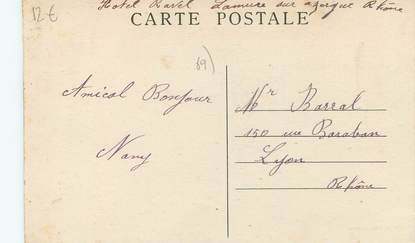 12 €
Hotel Ravel Lamure sur azergue Rhône
CARTE POSTALE
69)
Amical Bonjour
Nany
Mr Barral
150 rue Baraban
Lyon
Rhône